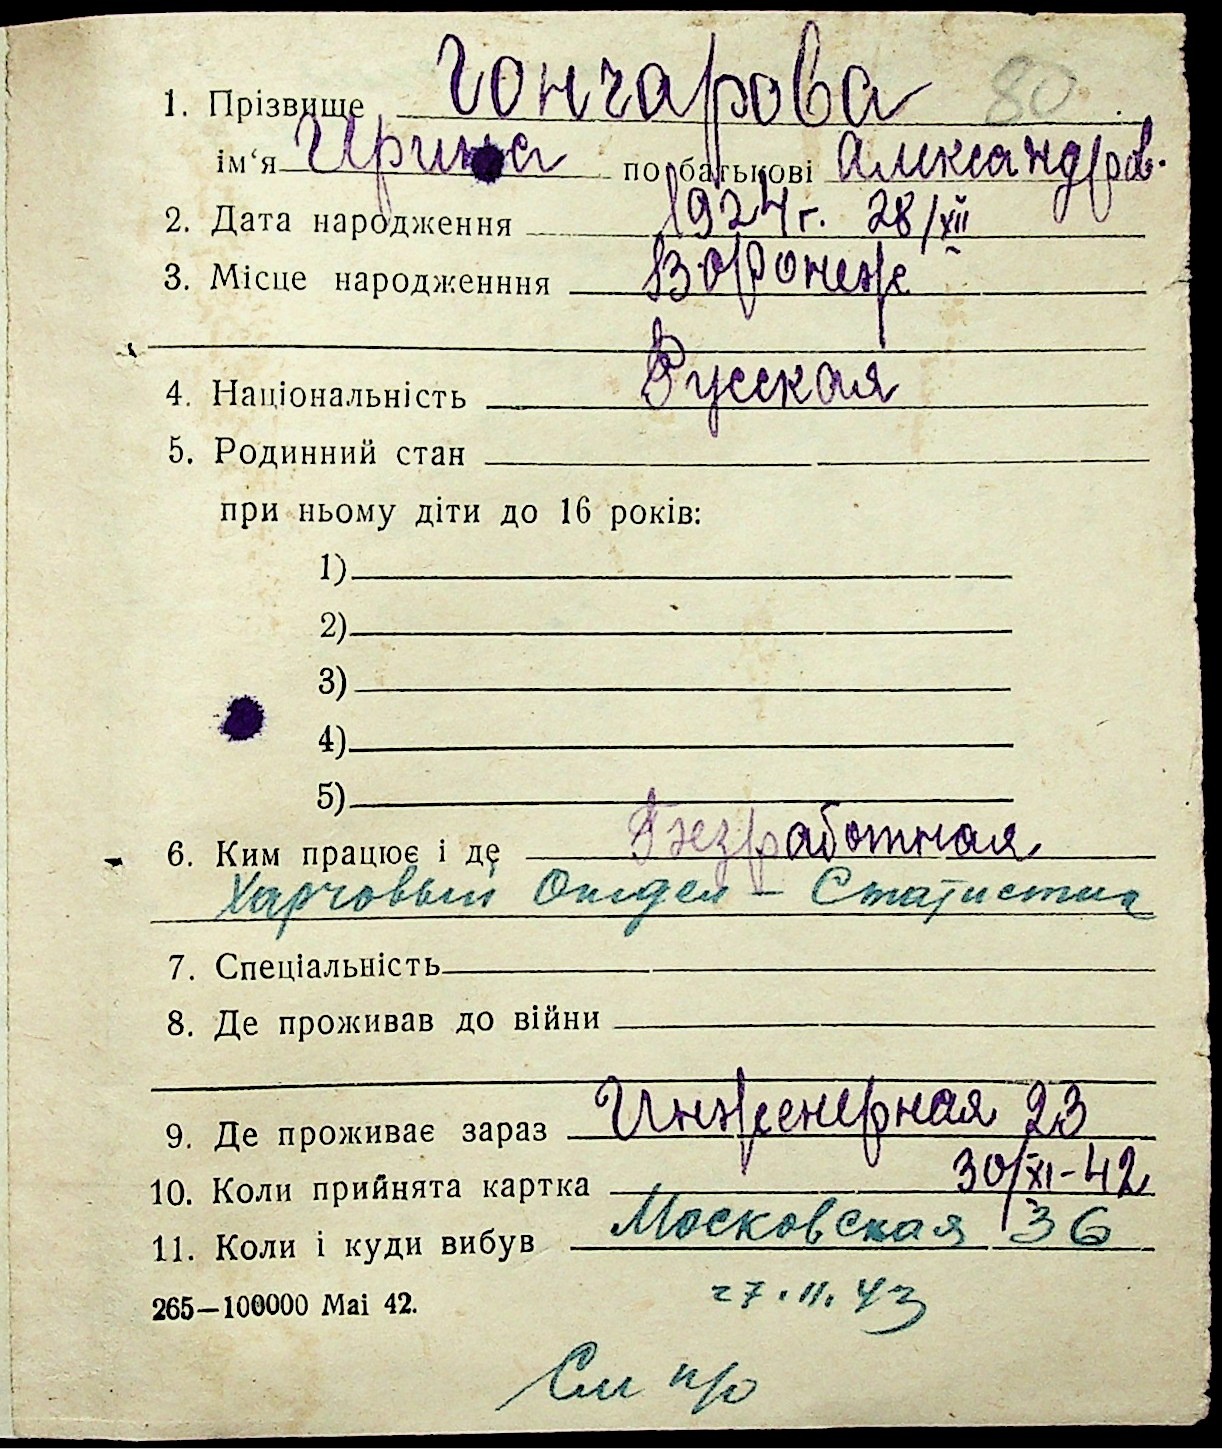 1. Прізвище Гончарова 80
ім‘я Ирина по батькові Александров.
2. Дата народження 1924 г. 28/XII
3. Місце народженння Воронеж
4. Національність Русская
5. Родинний стан
при ньому діти до 16 років:
1)
2)
3)
4)
5)
6. Ким працює і де Безработная
Харчовый Отдел – Статистик
7. Спеціальність
8. Де проживав до війни
9. Де проживає зараз Инженерная 23
10. Коли прийнята картка 30/XI-42
11. Коли і куди вибув Московская 36
265—100000 Маі 42.
27.II.43
См п/о